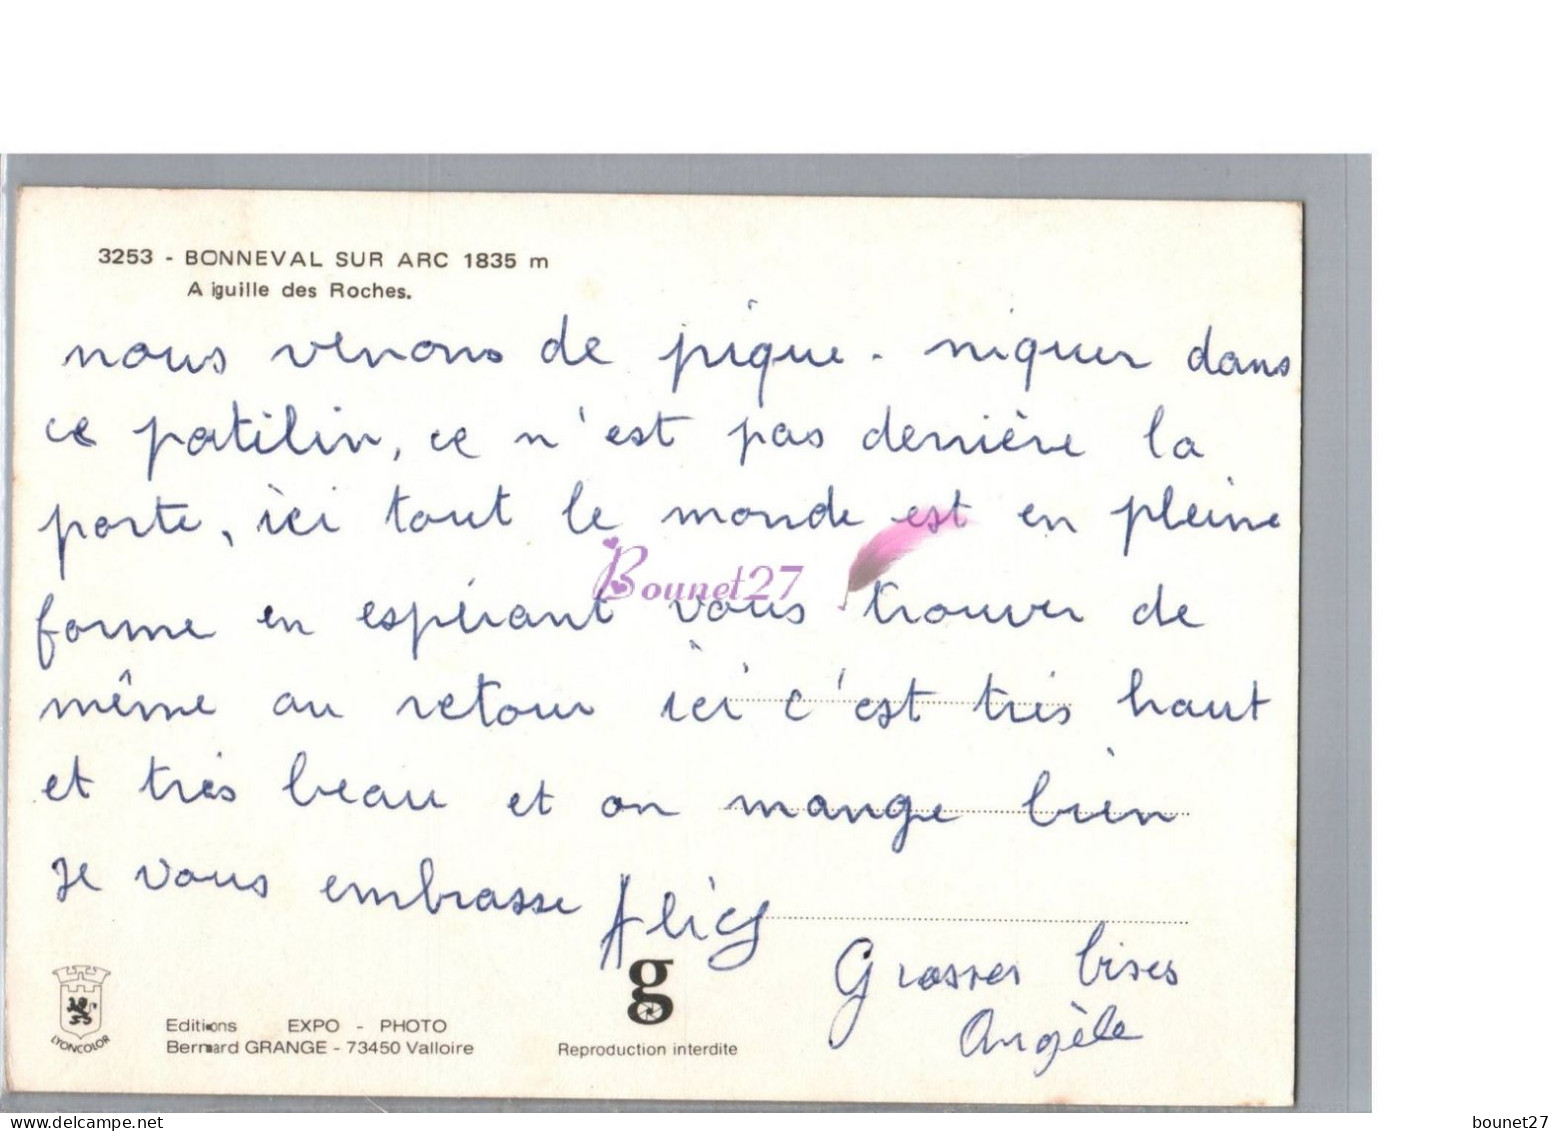 3253 - BONNEVAL SUR ARC 1835 m
Aiguille des Roches.
nous venons de pique-niquer dans
ce patilin, ce n'est pas derrière la
porte, ici tout le monde est en pleine
forme en espérant vous trouver de
même au retour ici c'est très haut
et très beau et on mange bien
je vous embrasse
Grosses bises
Angèle
LYONCOLOR
Editions EXPO - PHOTO
Bernard GRANGE - 73450 Valloire
g
Reproduction interdite
Bounet27
bounet27